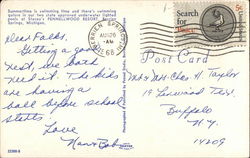 Summertime is swimming time and there's swimming
galore in our two state approved underwater lighted
pools at Stacey's PENNELLWOOD RESORT, Berrien
Springs, Michigan.
BERRIEN SPRINGS
AUG 26
AM
1966
Search for
Peace
5c
Post Card
Dear Folks,
Getting a good
rest, we both
need it. The kids
are having a
ball before school
starts
Love
Mr & Mrs Chas H. Taylor
19 Linwood Ter.
Buffalo
N.Y.
14209